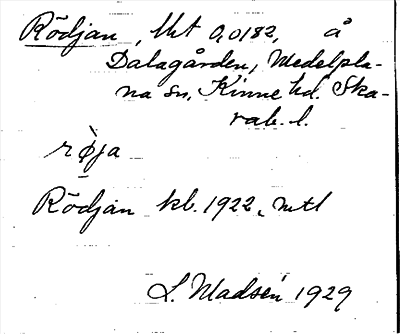 Rödjan, Mt 0,0182, å
Dalagården, Medelpla-
na sn, Kinne hd. Ska-
rab. l.
rø̀ja
Rödjan kb. 1922, mtl
L. Madsén 1929